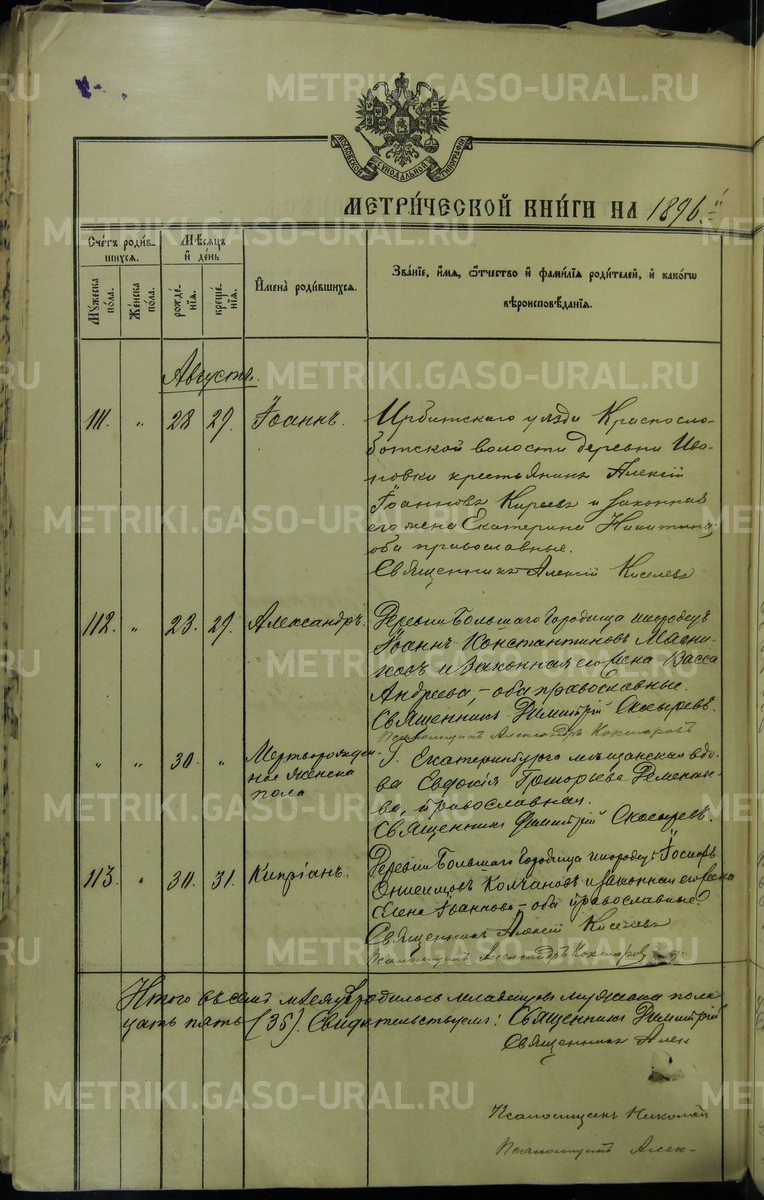 METRIKI.GASO-URAL.RU
МОСКОВСКОЙ СѴНОДАЛЬНОЙ ТИПОГРАФІИ
МЕТРИ́ЧЕСКОЙ КНИ́ГИ НА 1896й
Сче́тъ роди́в-
шихся.
Мꙋ́жеска
по́ла.
Же́нска
пола.
Мѣ́сяцъ
и҆ де́нь
рожде́-
нія.
креще́-
нія.
И҆мена̀ роди́вшихся.
Зва́ніе, и҆́мя, ѻ҆́тчество и҆ фами́лія роди́телей, и҆ како́гѡ
вѣроисповѣ́данія.
Августъ.
111. " 28 29. Іоаннъ. Ирбитскаго уѣзда Краснослo-
бодской волости деревни Ива-
новки крестьянинъ Алексій
Іоанновъ Киревъ и законная
его жена Екатерина Никитина,
оба православные.
Священникъ Алексій Киселевъ
112. " 23. 29. Александръ. Деревни Большаго Городища инородецъ
Іоаннъ Константиновъ
и законная его жена Васса
Андреева, - оба православные.
Священникъ Димитрій Скосыревъ.
Псаломщикъ Александръ Кокшаровъ
" " 30. " Мертворожден-
ное женска
пола
Г. Екатеринбурга мѣщанская вдо-
ва Евдокія Григорьева
православная.
Священникъ Димитрій Скосыревъ.
113. " 30. 31. Кипріанъ. Деревни Большаго Городища инородецъ Іосифъ
Колчановъ и законная его жена
Елена Іоаннова - оба православные
Священникъ Алексій Киселевъ
Псаломщикъ Александръ Кокшаровъ
Итого въ семъ мѣсяцѣ родилось младенцевъ мужеска пола
цать пять (35). Свидѣтельствуемъ: Священникъ Димитрій
Священникъ Алек
Псаломщикъ Николай
Псаломщикъ Алек-